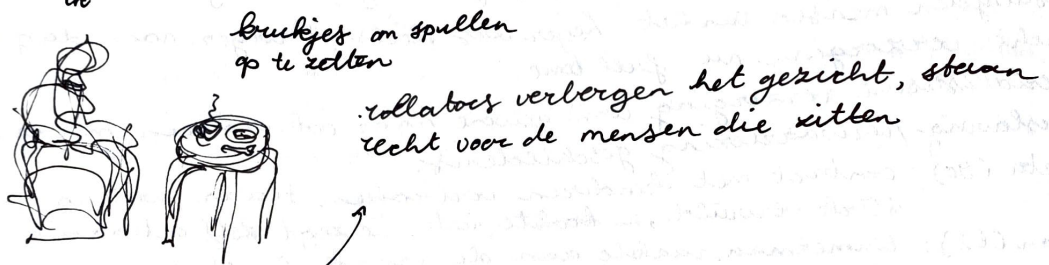 krukjes om spullen
op te zetten
rollators verbergen het gezicht, staan
recht voor de mensen die zitten